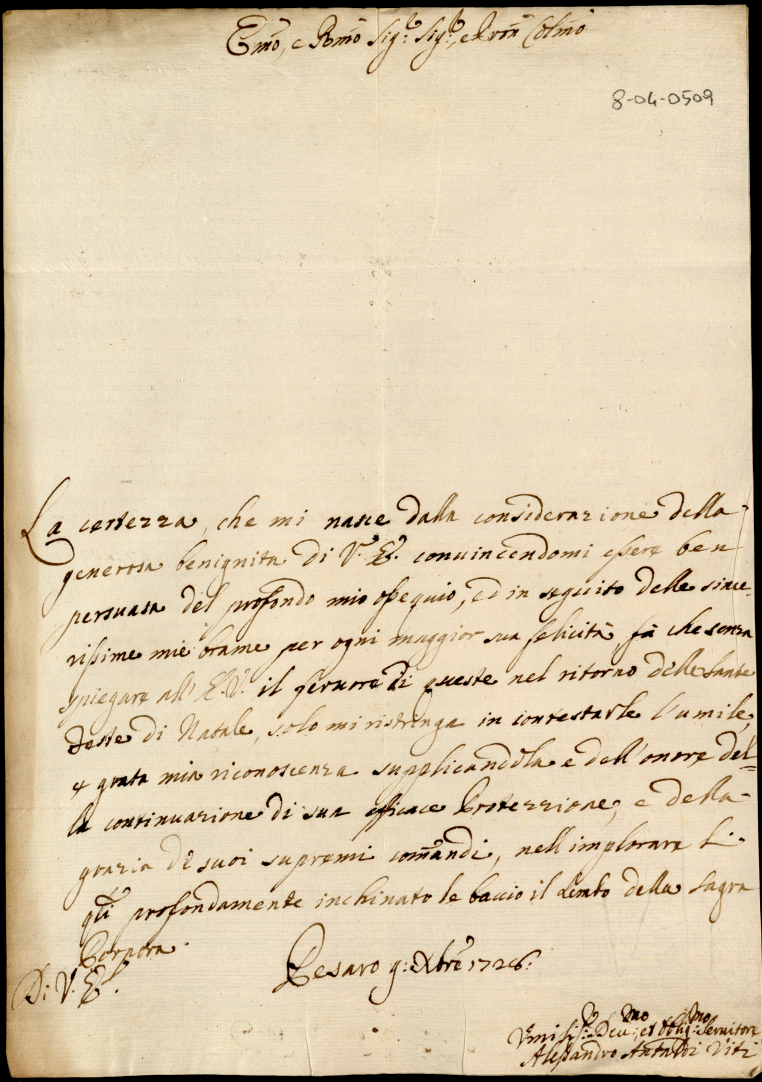 Emo, e Rmo Sig.r Sig.r, e Pron Colmo
8-04-0509
La certezza, che mi nasce dalla considerazione della
generosa benignità di V. E. convincendomi essere ben
persuasa del profondo mio ossequio, ed in seguito delle since-
rissime mie brame per ogni maggior sua felicità fà che senza
spiegare all' E. V. il fervore di queste nel ritorno delle Sante
Feste di Natale, solo mi ristringa in contestarle l'umile,
e grata mia riconoscenza supplicandola e dell'onore del-
la continuazione di sua efficace Protezzione, e della
grazia de suoi supremi comandi, nell'implorare li
qli profondamente inchinato le baccio il Lembo della Sagra
Porpora.
Di V. E.
Pesaro 9: Xbre 1726:
Vmilis.o Deu.mo, et Obblig.mo Seruitore
Alessandro Antaldi Viti